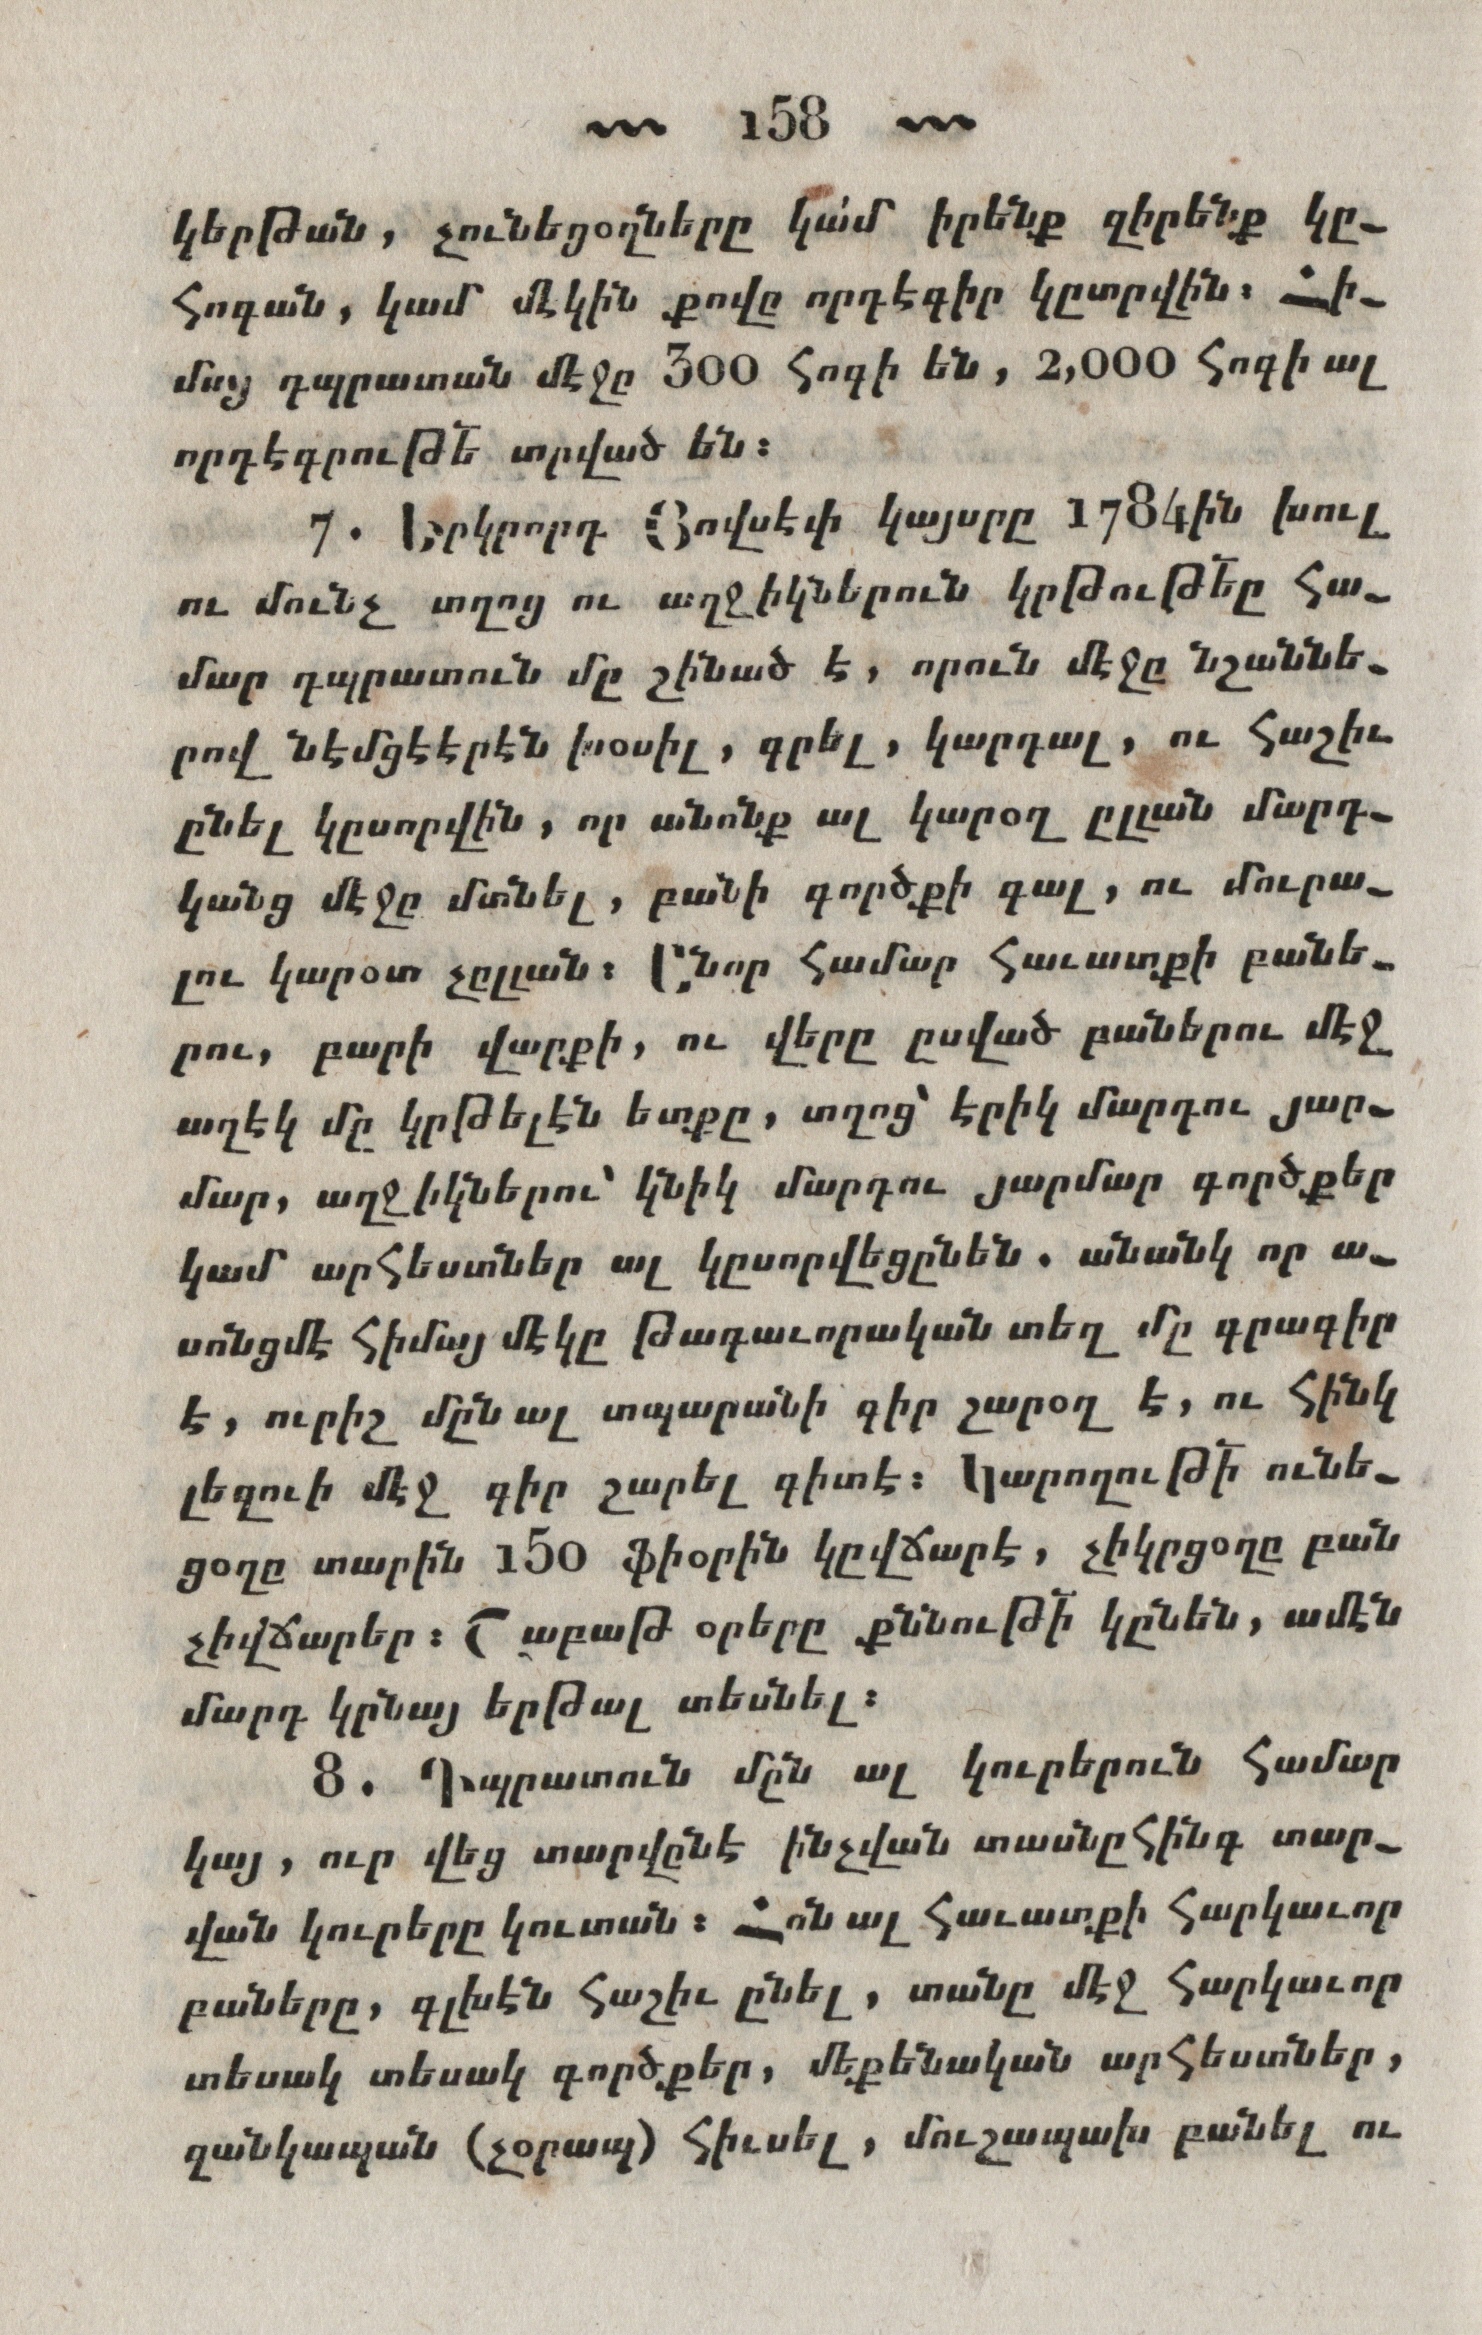 158
կերթան, չունեցօղները կա՛մ իրենք զիրենք կը-
հոգան, կամ մէկին քովը որդէգիր կըտրվին։ Հի-
մայ դպրատան մէջը 300 հոգի են, 2,000 հոգի ալ
որդէգրութե՟ տրված են։
7. Երկրորդ Յովսէփ կայսրը 1784ին խուլ
ու մունչ տղոց ու աղջիկներուն կրթութե՟ը հա-
մար դպրատուն մը շինած է, որուն մէջը նշաննե-
րով նէմցէէրէն խօսիլ, գրել, կարդալ, ու հաշիւ
ընել կըսորվին, որ անոնք ալ կարօղ ըլլան մարդ-
կանց մէջը մտնել, բանի գործքի գալ, ու մուրա-
լու կարօտ չըլլան։ Անոր համար հաւատքի բանե-
րու, բարի վարքի, ու վերը ըսված բաներու մէջ
աղէկ մը կրթելէն ետքը, տղոց՝ էրիկ մարդու յար-
մար, աղջիկներու՝ կնիկ մարդու յարմար գործքեր
կամ արհեստներ ալ կըսորվեցընեն. անանկ որ ա-
սոնցմէ հիմայ մէկը թագաւորական տեղ մը գրագիր
է, ուրիշ մըն ալ տպարանի գիր շարօղ է, ու հինկ
լեզուի մէջ գիր շարել գիտէ։ Կարողութի՟ ունե-
ցօղը տարին 150 ֆիօրին կըվճարէ, չիկրցօղը բան
չիվճարեր։ Շաբաթ օրերը քննութի՟ կընեն, ամէն
մարդ կրնայ երթալ տեսնել։
8. Դպրատուն մըն ալ կուրերուն համար
կայ, ուր վեց տարվընէ ինչվան տասնըհինգ տար-
վան կուրերը կուտան։ Հոն ալ հաւատքի հարկաւոր
բաները, գլխէն հաշիւ ընել, տանը մէջ հարկաւոր
տեսակ տեսակ գործքեր, մեքենական արհեստներ,
զանկապան (չօրապ) հիւսել, մուշապախ բանել ու